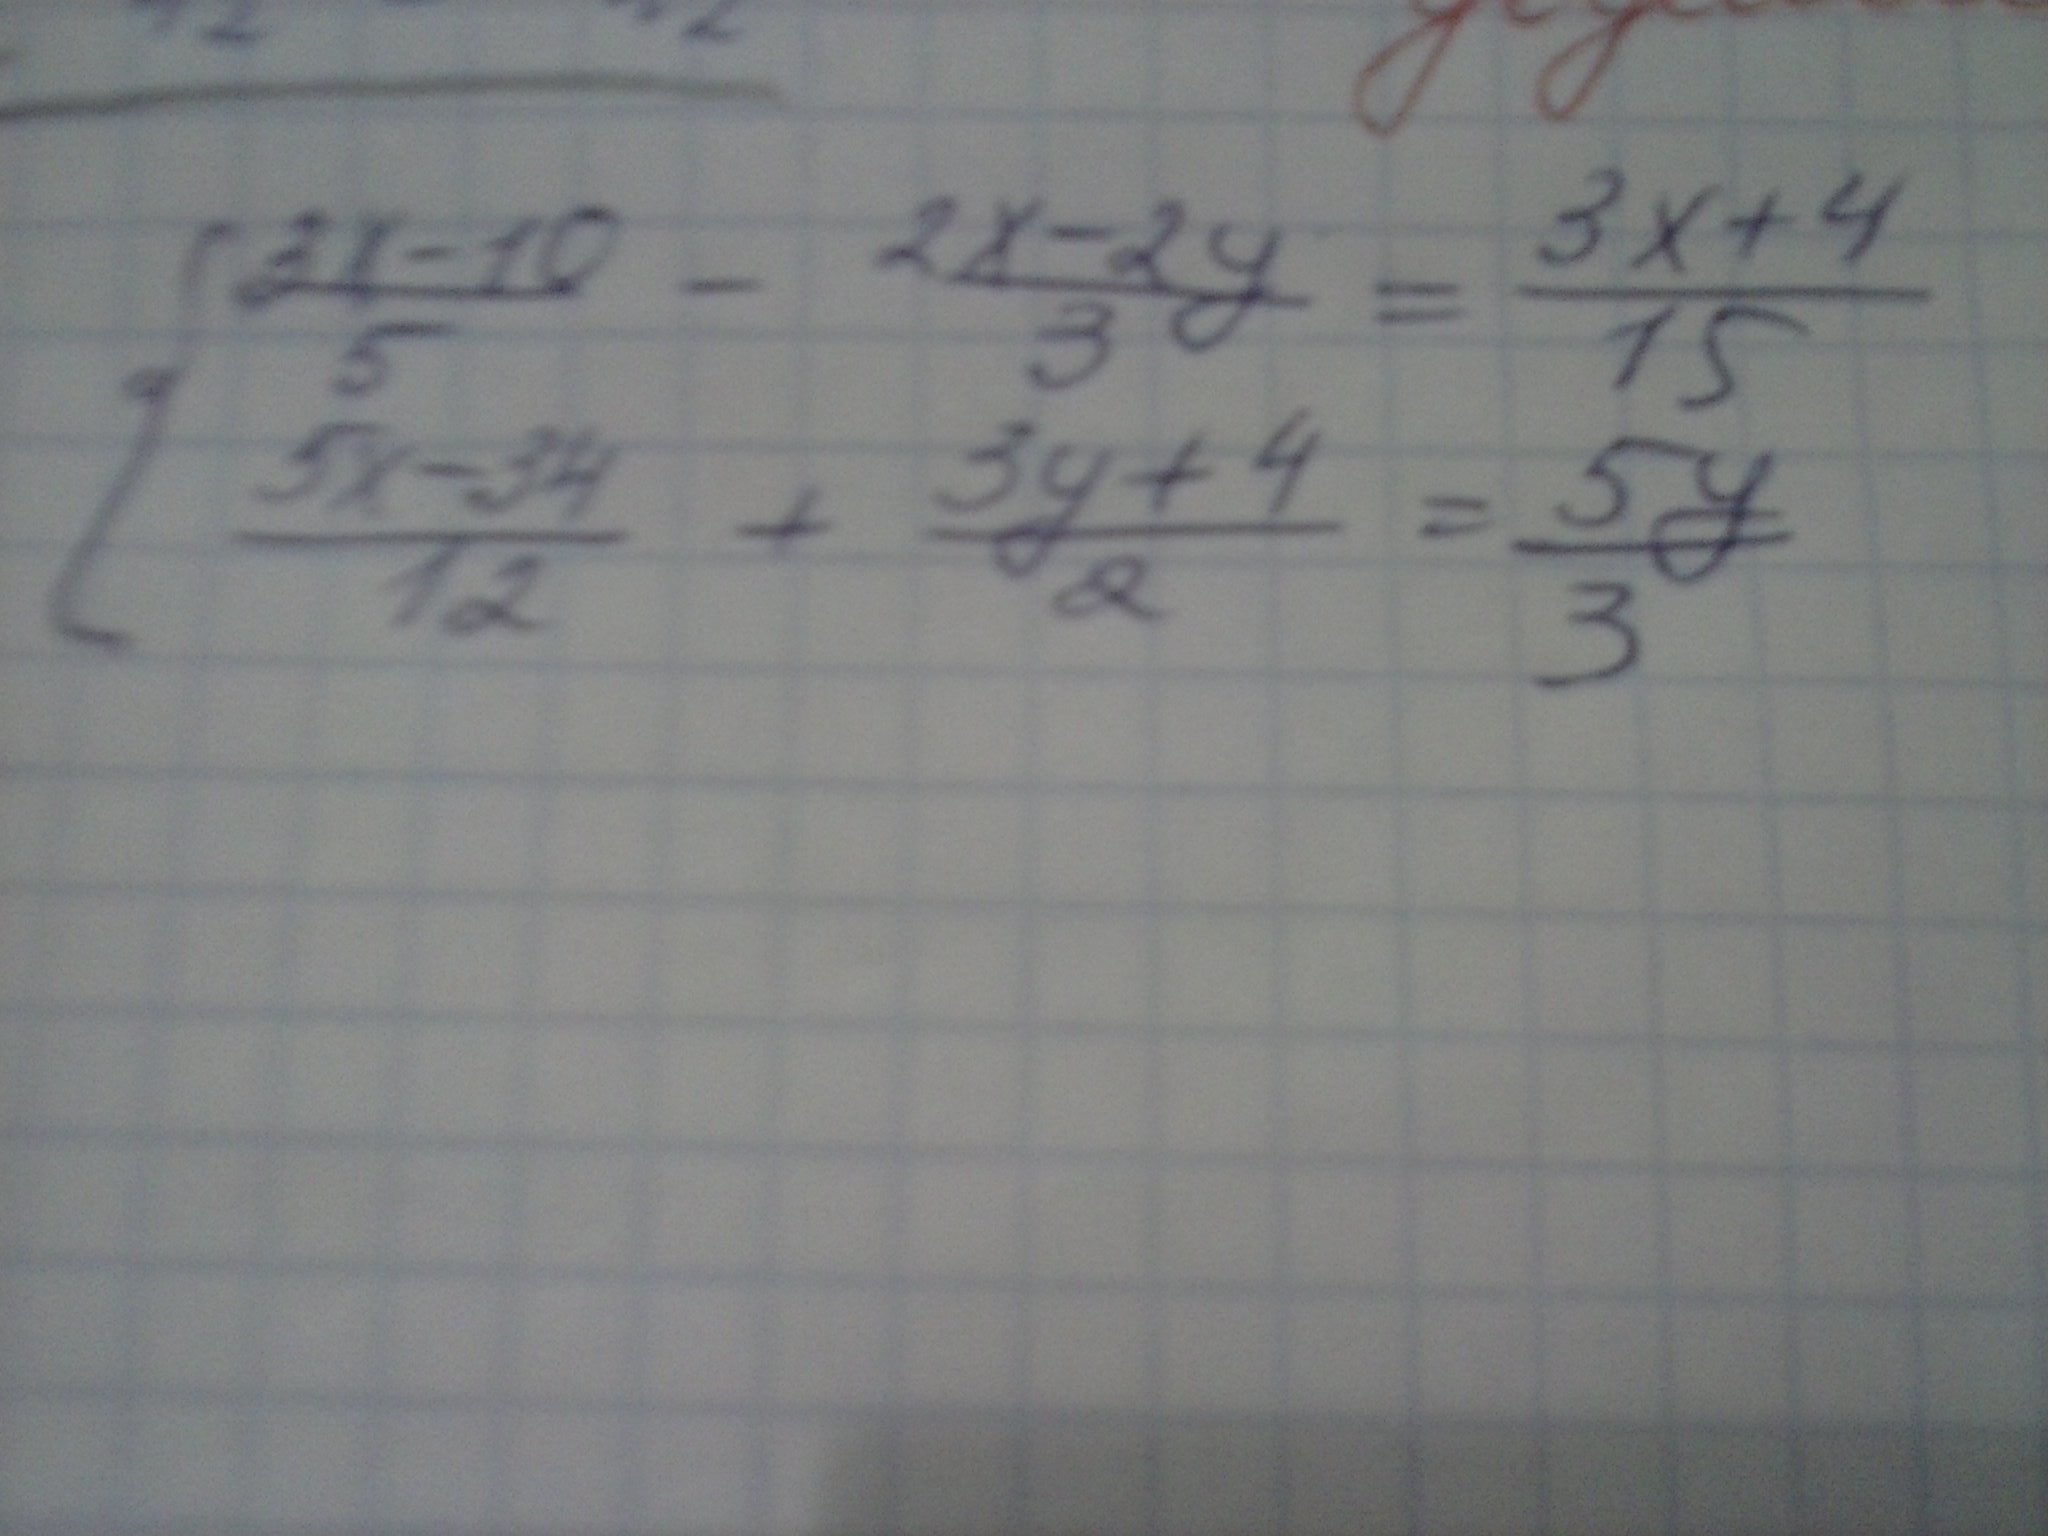 (3x-10)/5 - (2x-2y)/3 = (3x+4)/15
(5x-34)/12 + (3y+4)/2 = 5y/3